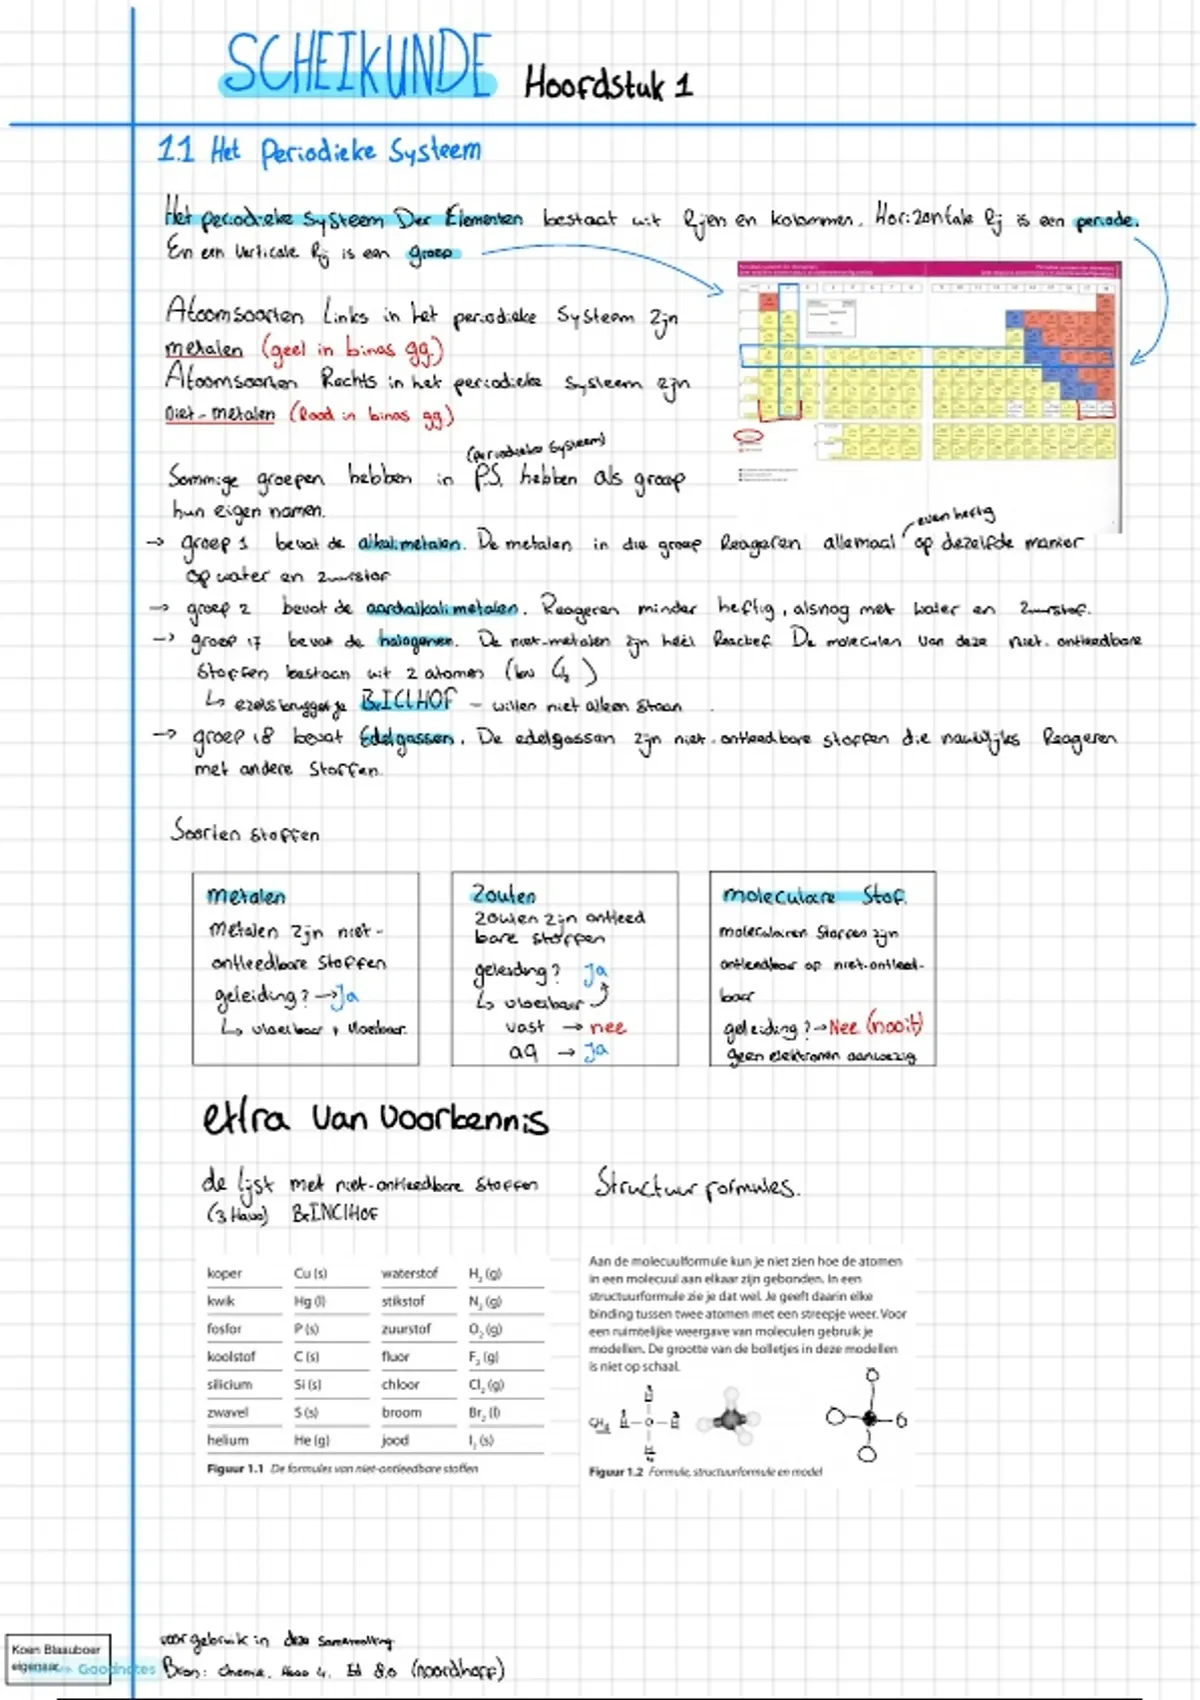 SCHEIKUNDE Hoofdstuk 1
1.1 Het Periodieke Systeem
Het periodieke Systeem Der Elementen bestaat uit Rijen en kolommen. Horizontale Rij is een periode.
En een Verticale Rij is een groep
Atoomsoorten Links in het periodieke Systeem zijn
metalen (geel in binas 99)
Atoomsoorten Rechts in het periodieke Systeem zijn
niet-metalen (Rood in binas 99)
(periodieke Systeem)
Sommige groepen hebben in P.S. hebben als groep
hun eigen namen.
even heftig
→ groep 1 bevat de alkalimetalen. De metalen in die groep Reageren allemaal op dezelfde manier
op water en zuurstof
→ groep 2 bevat de aardalkalimetalen. Reageren minder heftig, alsnog met water en zuurstof.
→ groep 17 bevat de halogenen. De niet-metalen zijn heel Reactief. De moleculen van deze niet-ontleedbare
Stoffen bestaan uit 2 atomen
↳ ezelsbruggetje BrIClHOF - willen niet alleen staan
→ groep 18 bevat Edelgassen. De edelgassen zijn niet-ontleedbare stoffen die nauwelijks Reageren
met andere Stoffen.
Soorten stoffen
metalen
metalen zijn niet-
ontleedbare Stoffen
geleiding? → Ja
Zouten
Zouten zijn ontleed
bare stoffen
geleiding? Ja
↳ vloeibaar
vast → nee
aq → Ja
moleculaire Stof.
moleculairen Stoffen zijn
ontleedbaar op niet-ontleed-
baar
geleiding? → Nee (nooit)
geen elektronen aanwezig
extra van Voorkennis
de lijst met niet-ontleedbare Stoffen
(3 Havo) BrINClHOF
Structuurformules.
koper Cu (s) waterstof H₂ (g)
kwik Hg (l) stikstof N₂ (g)
fosfor P (s) zuurstof O₂ (g)
koolstof C (s) fluor F₂ (g)
silicium Si (s) chloor Cl₂ (g)
zwavel S (s) broom Br₂ (l)
helium He (g) jood I₂ (s)
Figuur 1.1 De formules van niet-ontleedbare stoffen
Aan de molecuulformule kun je niet zien hoe de atomen
in een molecuul aan elkaar zijn gebonden. In een
structuurformule zie je dat wel. Je geeft daarin elke
binding tussen twee atomen met een streepje weer. Voor
een ruimtelijke weergave van moleculen gebruik je
modellen. De grootte van de bolletjes in deze modellen
is niet op schaal.
CH₄
Figuur 1.2 Formule, structuurformule en model
Koen Blaauboer
eigenaar
Goodnotes
voor gebruik in deze Samenvatting
Bron: Chemie, Havo 4, Ed 8.0 (noordhoff)